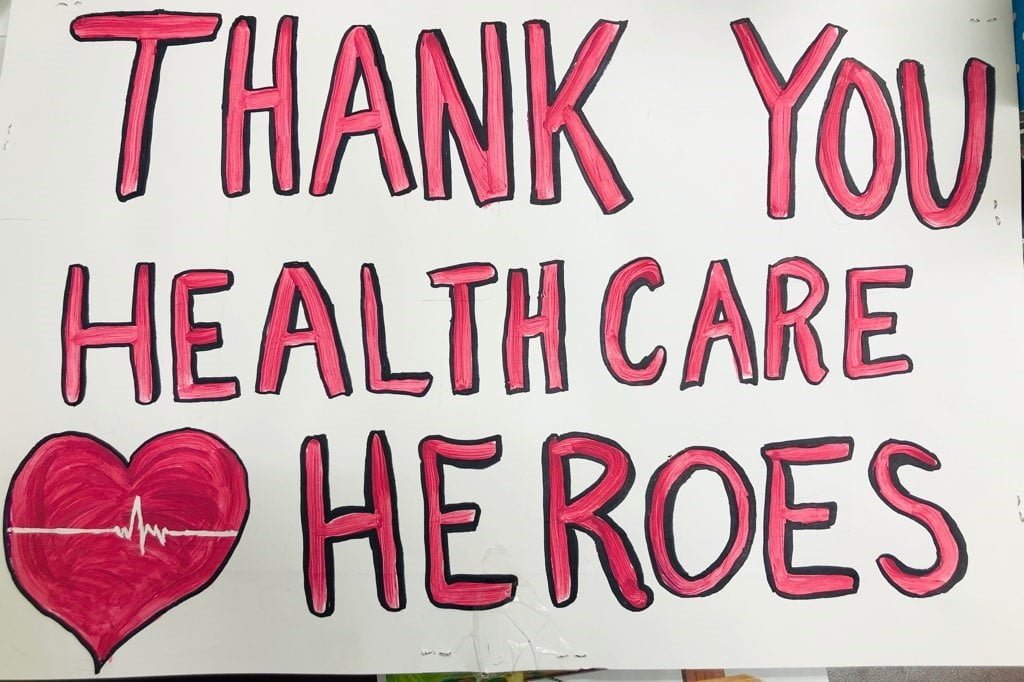 THANK YOU
HEALTH CARE
HEROES